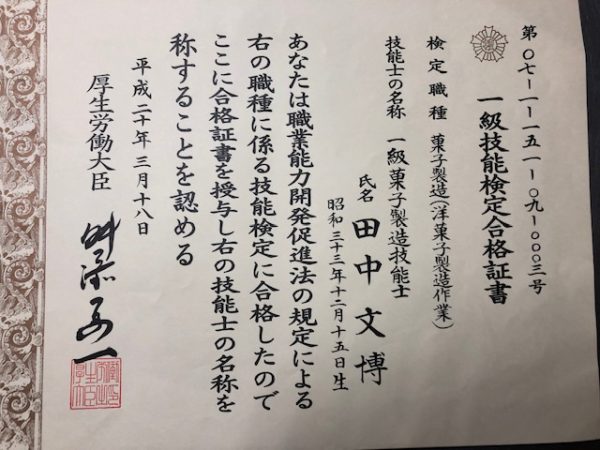 第〇七-一-一五一-〇九-〇〇〇三号
一級技能検定合格証書
検定職種 菓子製造(洋菓子製造作業)
技能士の名称 一級菓子製造技能士
氏名 田中文博
昭和三十三年十二月十五日生
あなたは職業能力開発促進法の規定による
右の職種に係る技能検定に合格したので
ここに合格証書を授与し右の技能士の名称を
称することを認める
平成二十年三月十八日
厚生労働大臣 舛添要一